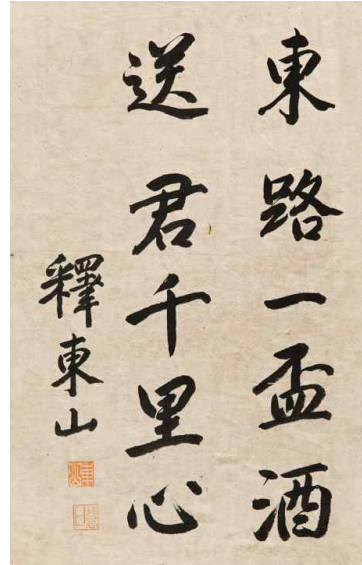 東路一盃酒
送君千里心
釋東山